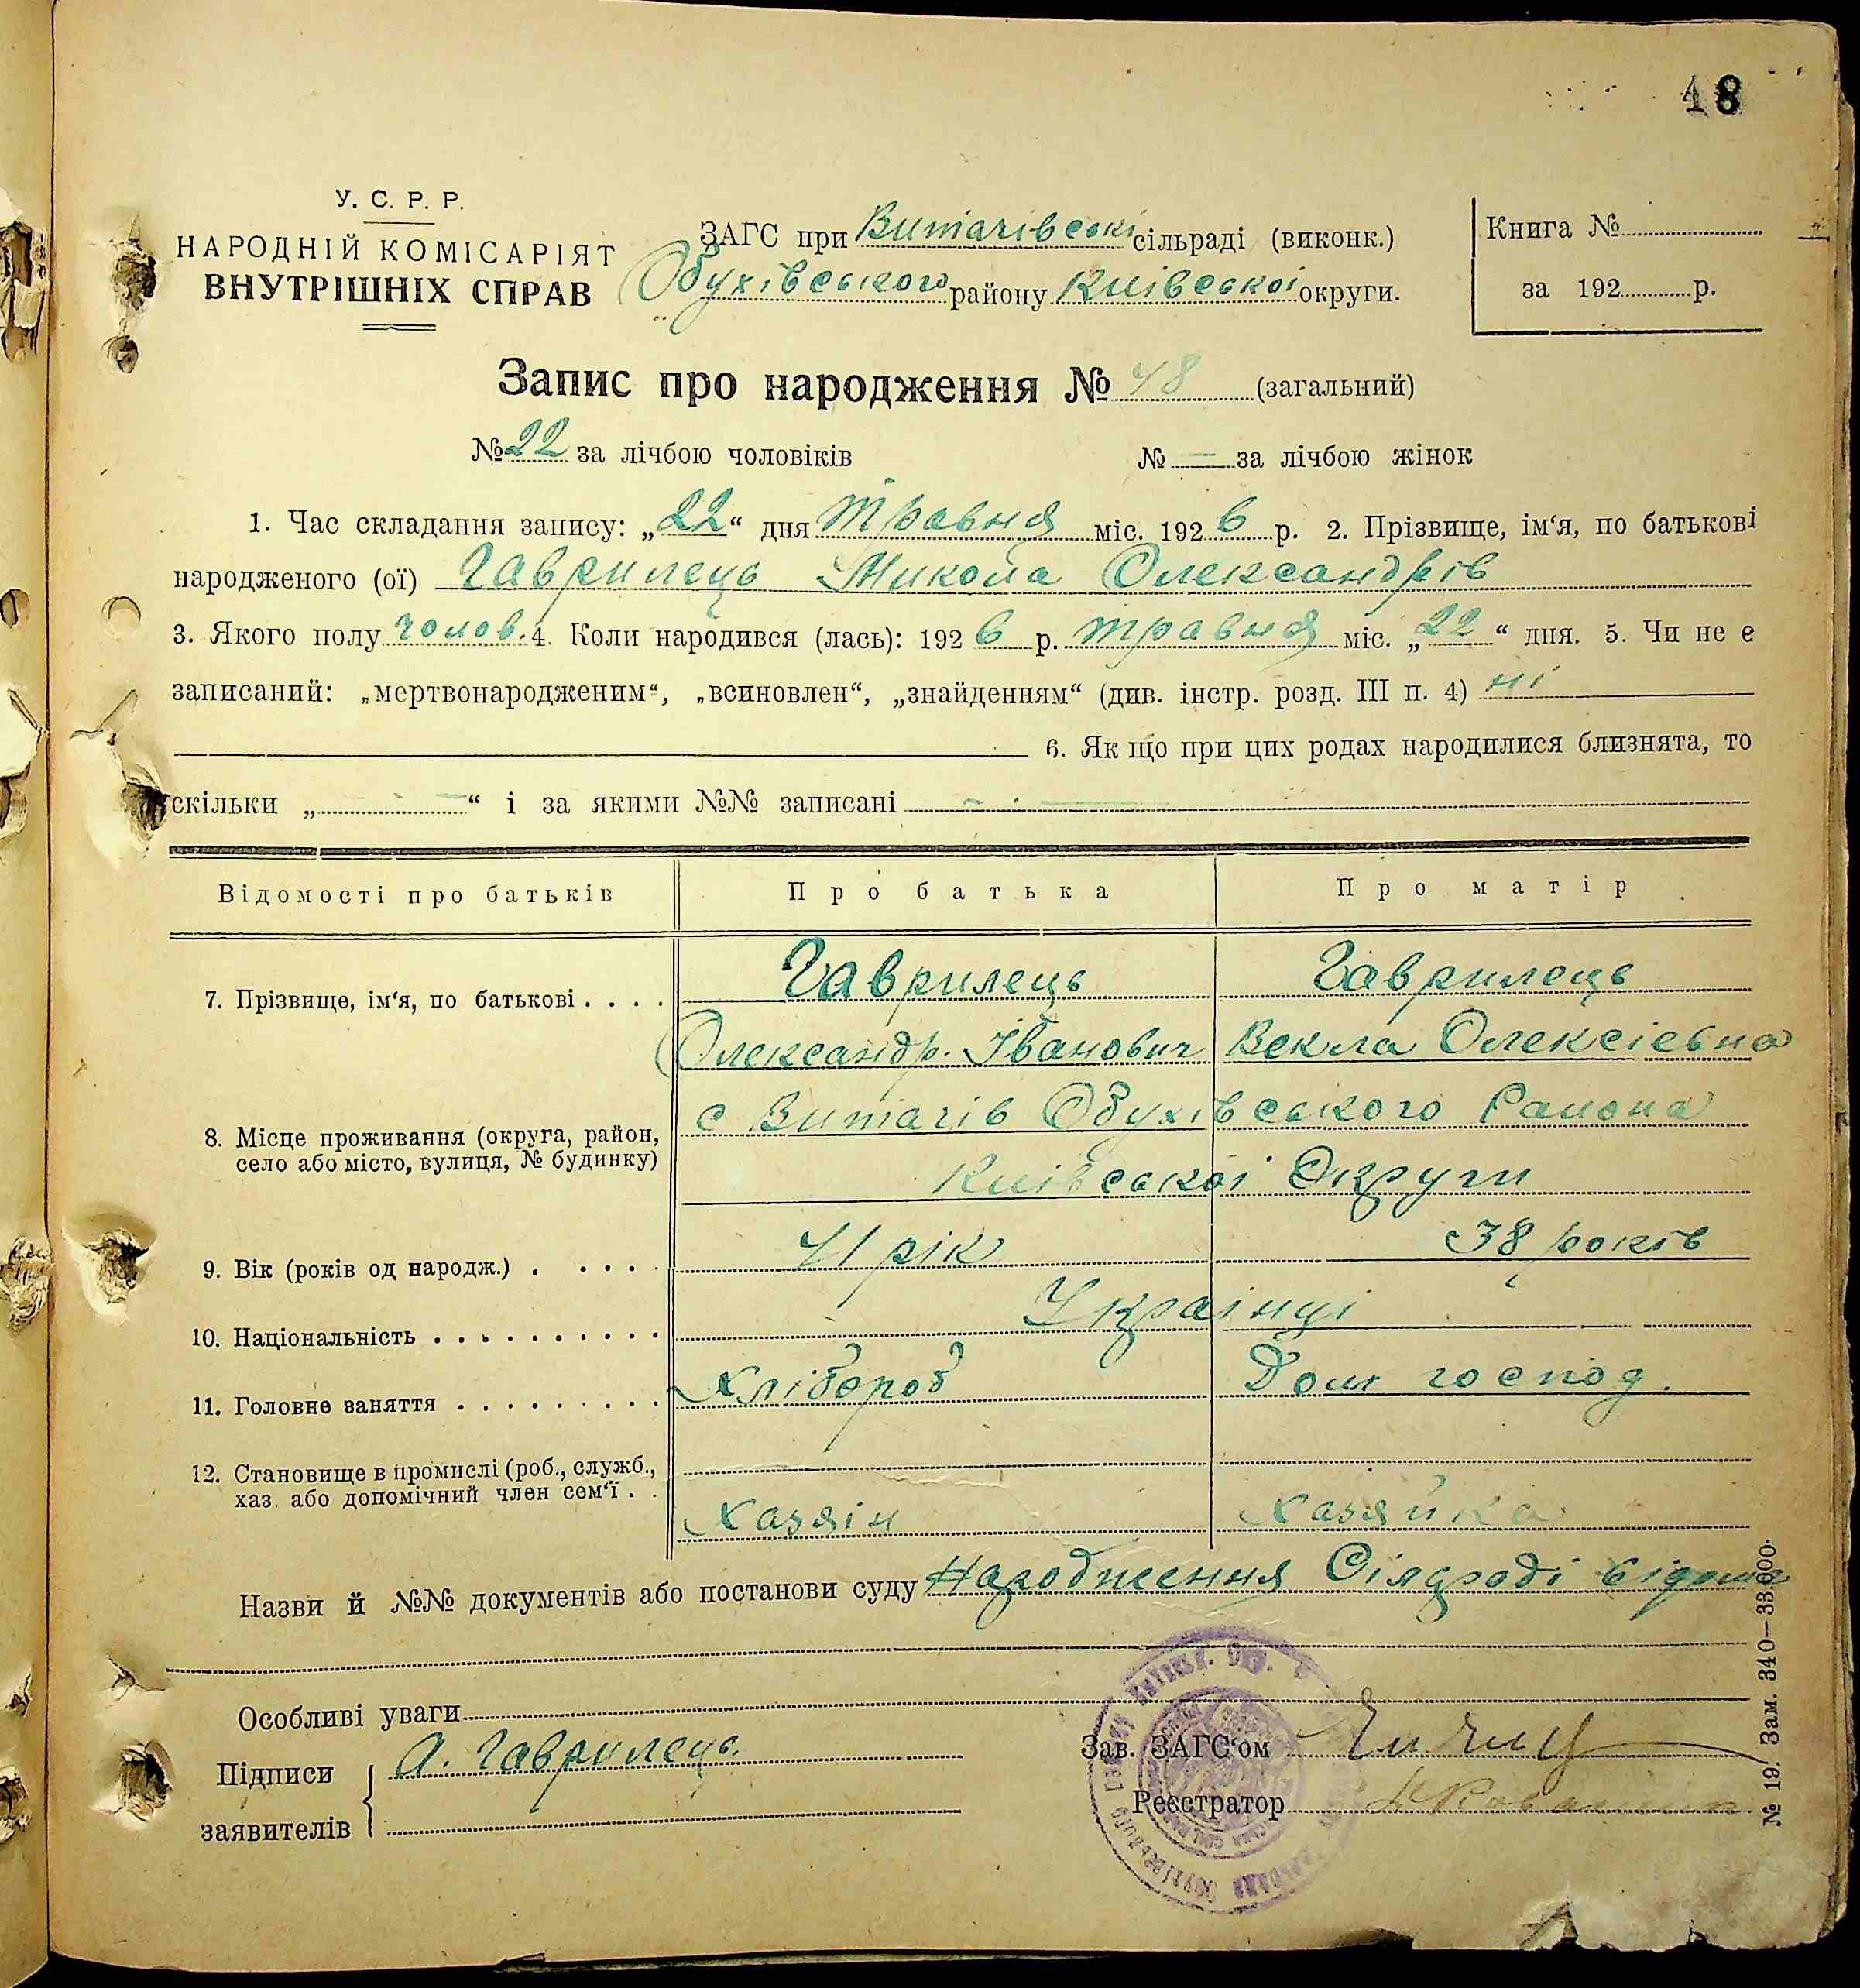 48
У. С. Р. Р.
НАРОДНІЙ КОМІСАРІЯТ
ВНУТРІШНІХ СПРАВ
ЗАГС при Витачівські сільраді (виконк.)
Обухівського району Київської округи.
Книга №
за 192 р.
Запис про народження № 48 (загальний)
№ 22 за лічбою чоловіків № — за лічбою жінок
1. Час складання запису: „22“ дня травня міс. 1926 р. 2. Прізвище, ім‘я, по батькові
народженого (ої) Гаврилець Микола Олександрів
3. Якого полу чолов. 4. Коли народився (лась): 1926 р. травня міс. „22“ дня. 5. Чи не є
записаний: „мертвонародженим“, „всиновлен“, „знайденням“ (див. інстр. розд. III п. 4) ні
6. Як що при цих родах народилися близнята, то
скільки „ — “ і за якими №№ записані —
Відомості про батьків Про батька Про матір
7. Прізвище, ім‘я, по батькові . . . . Гаврилець Гаврилець
Олександр. Іванович Векла Олексіевна
8. Місце проживання (округа, район, село або місто, вулиця, № будинку) с Витачів Обухівського Района
Київської Округи
9. Вік (років од народж.) . . . . . 41 рік 38 років
10. Національність . . . . . . . . . . Українці
11. Головне заняття . . . . . . . . . Хлібороб Дом господ.
12. Становище в промислі (роб., служб.,
хаз. або допомічний член сем‘ї . . Хазяін Хазяйка
Назви й №№ документів або постанови суду Народження Сілдраді відоме
Особливі уваги
Підписи заявителів А. Гаврилець.
Зав. ЗАГС‘ом
Реєстратор
№ 19. Зам. 340—33.000.